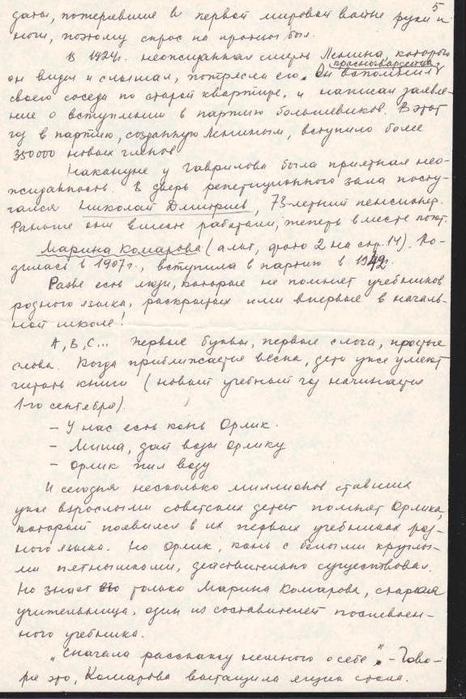 5
даты, потерявшие в первой мировой войне руки и
ноги, поэтому спрос на протезы был.
В 1924г. неожиданная смерть Ленина, которого
он видел и слышал, потрясла его. Он вспомнил
своего соседа по старой квартире, и написал заявле-
ние о вступлении в партию большевиков. В этот
год в партию, созданную Лениным, вступило более
350000 новых членов
Накануне у Гаврилова была приятная нео-
жиданность. В дверь репетиционного зала посту-
чался Николай Дмитриев, 73-летний пенсионер.
Раньше они вместе работали, теперь вместе поют.
Марина Комарова (альт, фото 2 на стр. 14). Ро-
дилась в 1907г., вступила в партию в 1942г.
Разве есть люди, которые не помнят учебников
родного языка, раскрытых ими впервые в началь-
ной школе!
А, В, С... первые буквы, первые слога, простые
слова. Когда приближается весна, дети уже умеют
читать книги (новый учебный год начинается
1-го сентября).
- У нас есть конь Орлик.
- Миша, дай воды Орлику
- Орлик пил воду
И сегодня несколько миллионов ставших
уже взрослыми советских детей помнят Орлика,
который появился в их первых учебниках род-
ного языка. Но Орлик, конь с белыми круглы-
ми пятнышками, действительно существовал.
Но знает это только Марина Комарова, старая
учительница, один из составителей послевоен-
ного учебника.
"Сначала расскажу немного о себе". - Гово-
ря это, Комарова вытащила ящик стола.